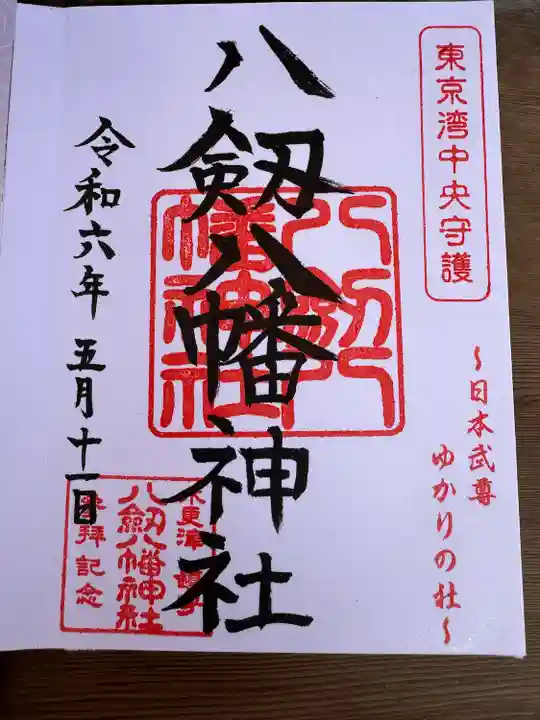 東京湾中央守護
～日本武尊
ゆかりの社～
八剱八幡神社
八剱八幡神社
令和六年 五月十一日
木更津
八劔八幡神社
参拝記念